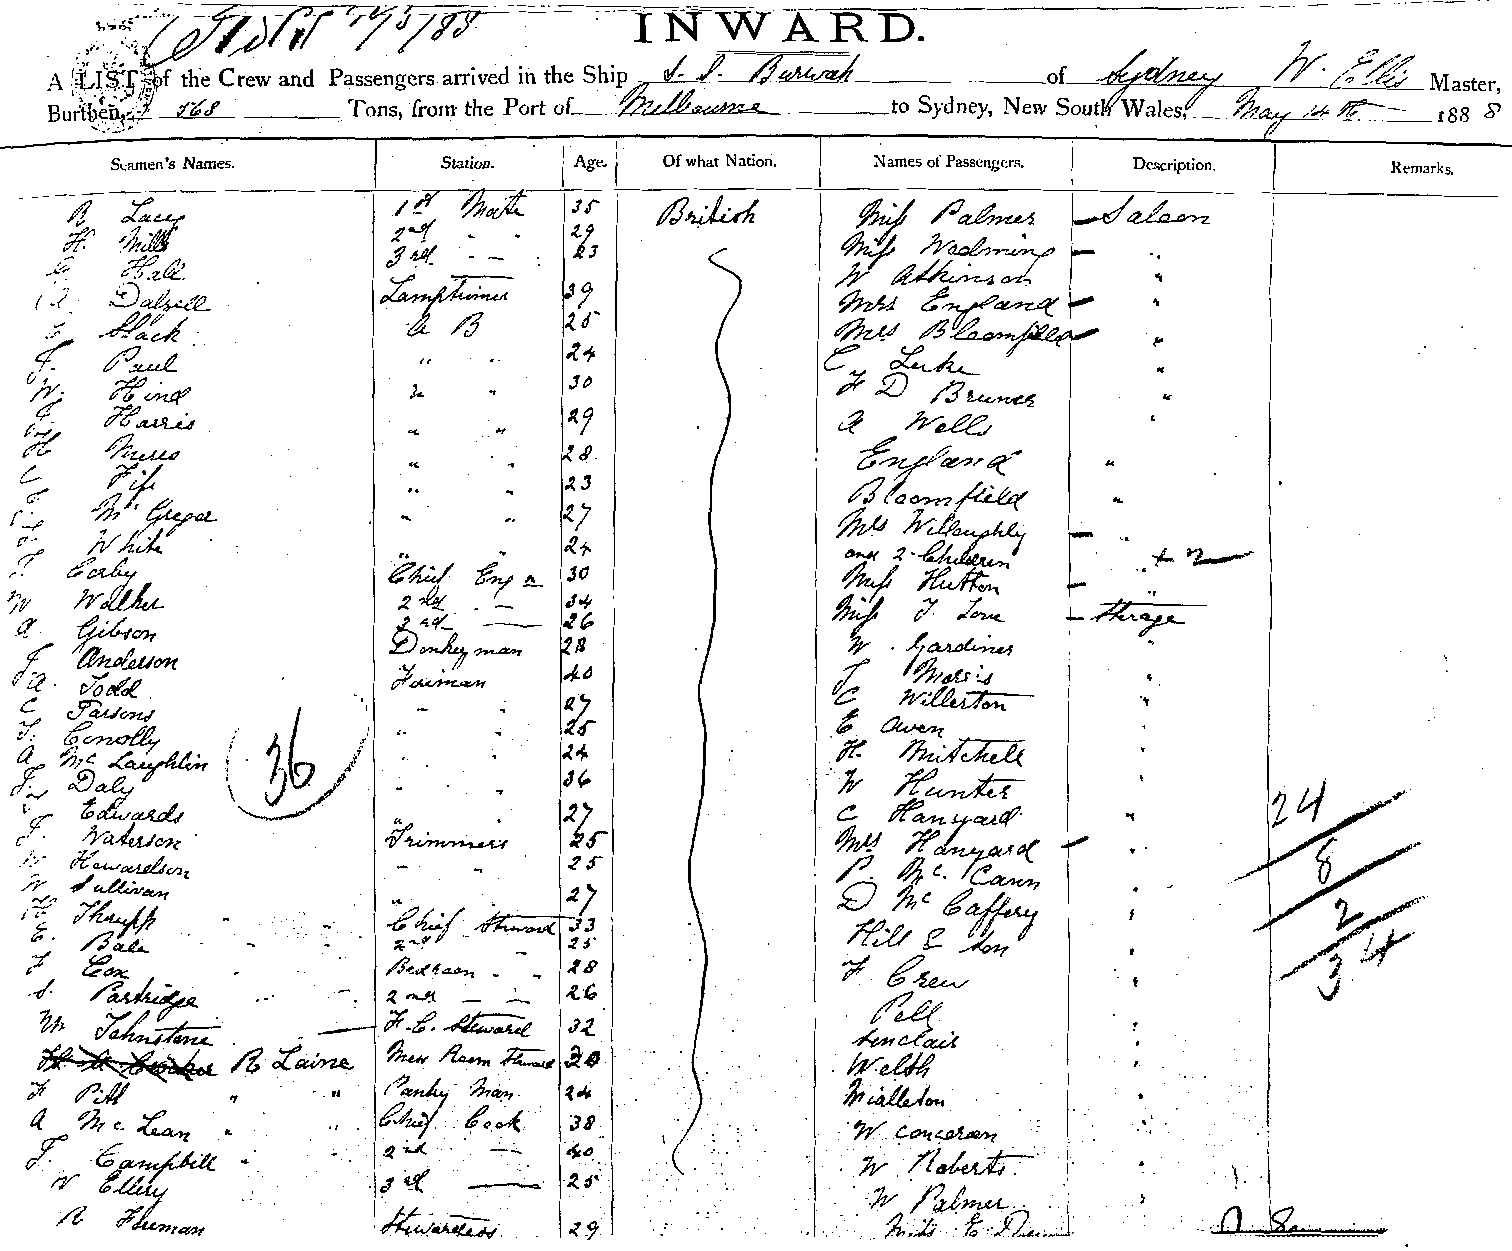 14/5/88
INWARD.
A LIST of the Crew and Passengers arrived in the Ship S. S. Burwah of Sydney W. Ellis Master,
Burthen, 568 Tons, from the Port of Melbourne to Sydney, New South Wales, May 14th 1888
Seamen's Names. Station. Age. Of what Nation. Names of Passengers. Description. Remarks.
R Lacey 1st Mate 35 British Miss Palmer Saloon
H. Mills 2nd " " 29 Miss Wedming "
Hall 3rd " 23 W Atkinson "
Dalzell Lamptrimer 39 Mrs England "
Slack A B 25 Mrs Bloomfield "
J. Paul " " 24 C Luke "
W. Hind " " 30 F D Bruner "
Harris " " 29 A Wells "
H Meres " " 28 England "
C Fife " " 23 Bloomfield "
Mc Gregor " " 27 Mrs Willoughly "
White " " 24 and 2 Children " + 2
Corby Chief Engr 30 Miss Hutton "
W Walker 2nd " 34 Miss J. Love Sterage
A Gibson 3rd 26 W. Gardiner "
J. Anderson Donkeyman 28 J Morris "
A. Todd Foiman 40 C Willerton "
C Parsons " " 27 E Owen "
J. Conolly " " 25 H. Mitchell "
A McLaughlin " " 24 W Hunter "
Daly " " 36 C Hanyard "
36
Edwards " " 27 Mrs Hanyard "
24
J. Waterson Trimmers 25 P. Mc. Cann "
8
W Howardson " " 25 D McCaffery "
2
W Sullivan " 27 Hill & son "
34
H. Thrupp " " Chief Steward 33 F Crew "
E. Bale " " 2nd " 25 Pell "
F Cox " " Bedroom " " 28 Sinclair "
S. Partridge " " 2nd " " 26 Welsh "
W Johnstone F. C. Steward 32 Mialleton "
R Laine Mess Room Steward 20 W concoran "
F Pitt " " Pantry Man 24 W Roberts "
A Mc Lean " " Chief Cook 38 W Palmer "
J. Campbill " 2nd " 40
W Ellery 3rd 25
R Fhuman Stewardess 29